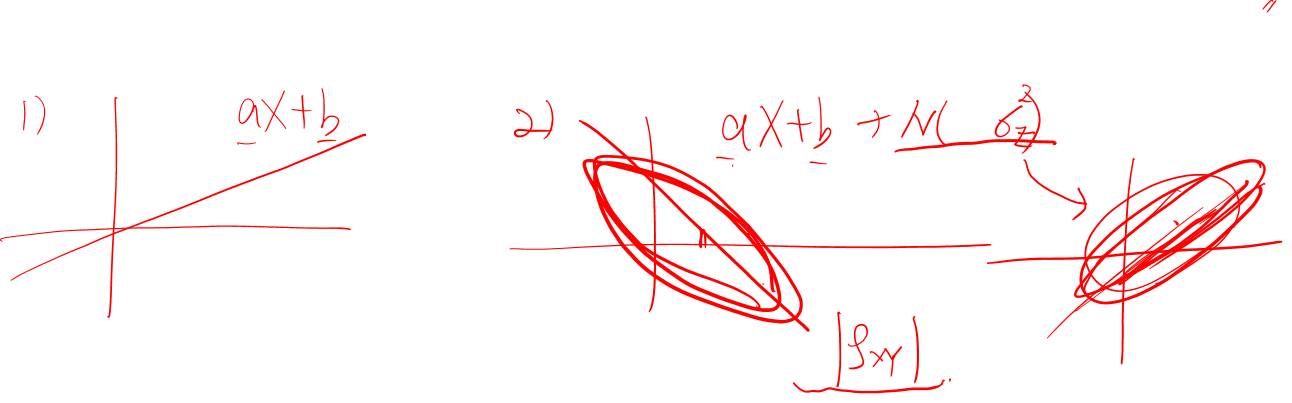 1)
aX+b
2)
aX+b + N( σ_Z²)
|ρ_XY|